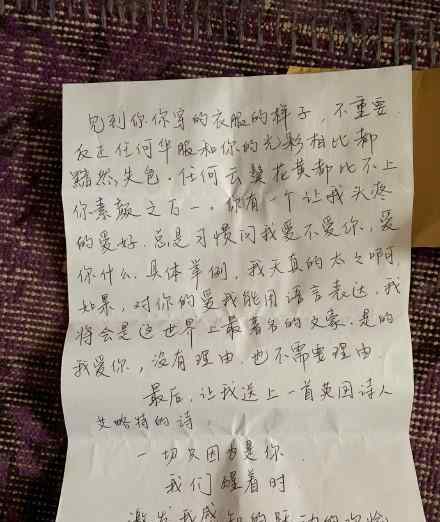 见到你你穿的衣服的样子，不重要.
反正任何华服和你的光彩相比都
黯然失色.任何云鬓花黄都比不上
你素颜之百一.你有一个让我头疼
的爱好.总是习惯问我爱不爱你,爱
你什么.具体举例,我天真的太太啊,
如果,对你的爱我能用语言表达.我
将会是这世界上最著名的文豪.是的
我爱你,没有理由.也不需要理由.
最后,让我送上一首英国诗人
艾略特的诗.
一切只因为是你.
我们醒着时.
激发我感知的跃动的